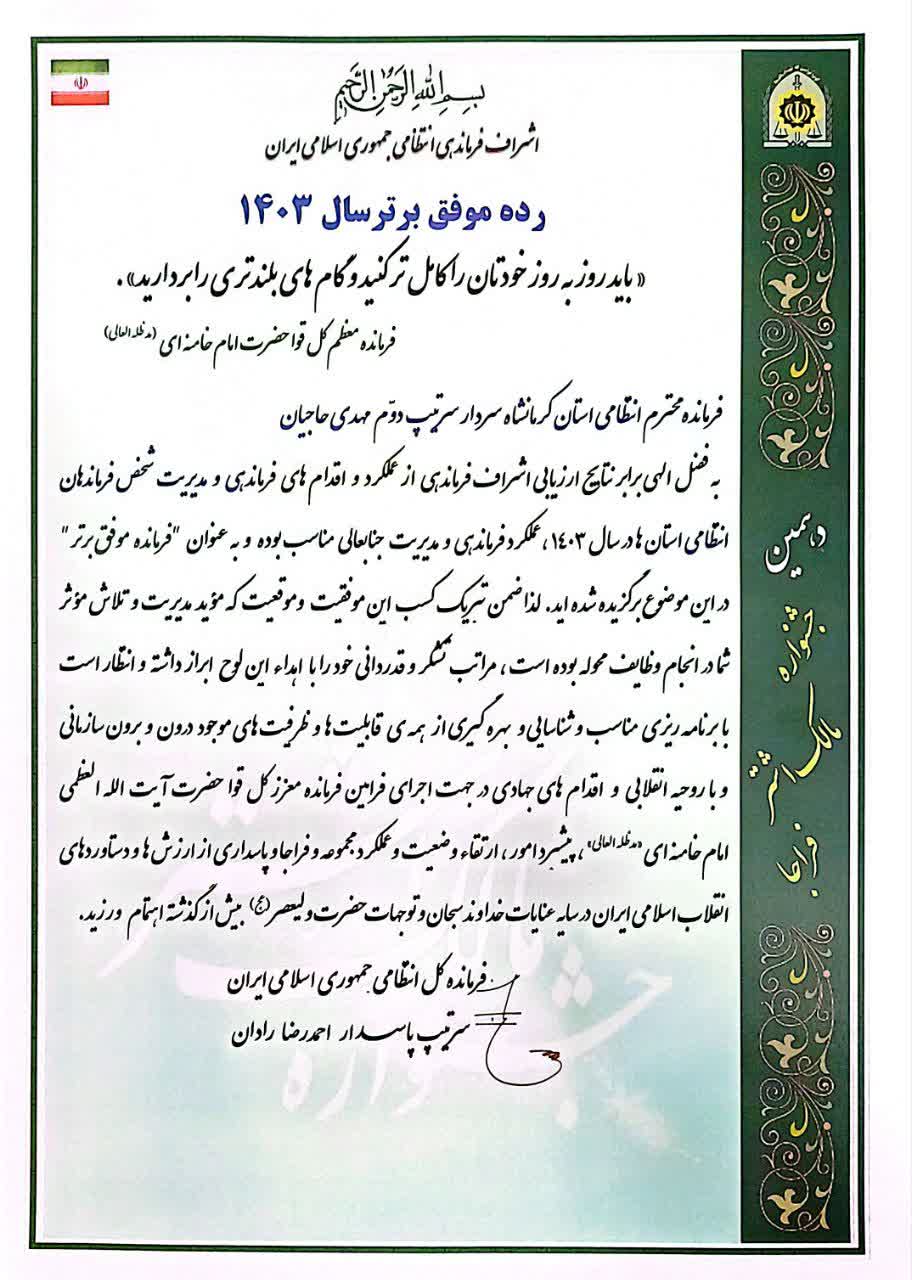 بسم الله الرحمن الرحیم
اشراف فرماندهی انتظامی جمهوری اسلامی ایران
رده موفق برتر سال ۱۴۰۳
«باید روز به روز خودتان را کامل تر کنید و گام های بلندتری را بردارید».
فرمانده معظم کل قوا حضرت امام خامنه ای (مدظله العالی)
فرمانده محترم انتظامی استان کرمانشاه سردار سرتیپ دوّم مهدی حاجیان
به فضل الهی برابر نتایج ارزیابی اشراف فرماندهی از عملکرد و اقدام های فرماندهی و مدیریت شخص فرماندهان
انتظامی استان ها در سال ۱۴۰۳، عملکرد فرماندهی و مدیریت جنابعالی مناسب بوده و به عنوان "فرمانده موفق برتر"
در این موضوع برگزیده شده اید. لذا ضمن تبریک کسب این موفقیت و موقعیت که مؤید مدیریت و تلاش مؤثر
شما در انجام وظایف محوله بوده است، مراتب تشکر و قدردانی خود را با اهداء این لوح ابراز داشته و انتظار است
با برنامه ریزی مناسب و شناسایی و بهره گیری از همه ی قابلیت ها و ظرفیت های موجود درون و برون سازمانی
و با روحیه انقلابی و اقدام های جهادی در جهت اجرای فرامین فرمانده معزز کل قوا حضرت آیت الله العظمی
امام خامنه ای «مدظله العالی»، پیشبرد امور، ارتقاء وضعیت و عملکرد مجموعه و فراجا و پاسداری از ارزش ها و دستاوردهای
انقلاب اسلامی ایران در سایه عنایات خداوند سبحان و توجهات حضرت ولیعصر (عج) بیش از گذشته اهتمام ورزید.
فرمانده کل انتظامی جمهوری اسلامی ایران
سرتیپ پاسدار احمدرضا رادان
دهمین جشنواره مالک اشتر فراجا
جشنواره مالک اشتر